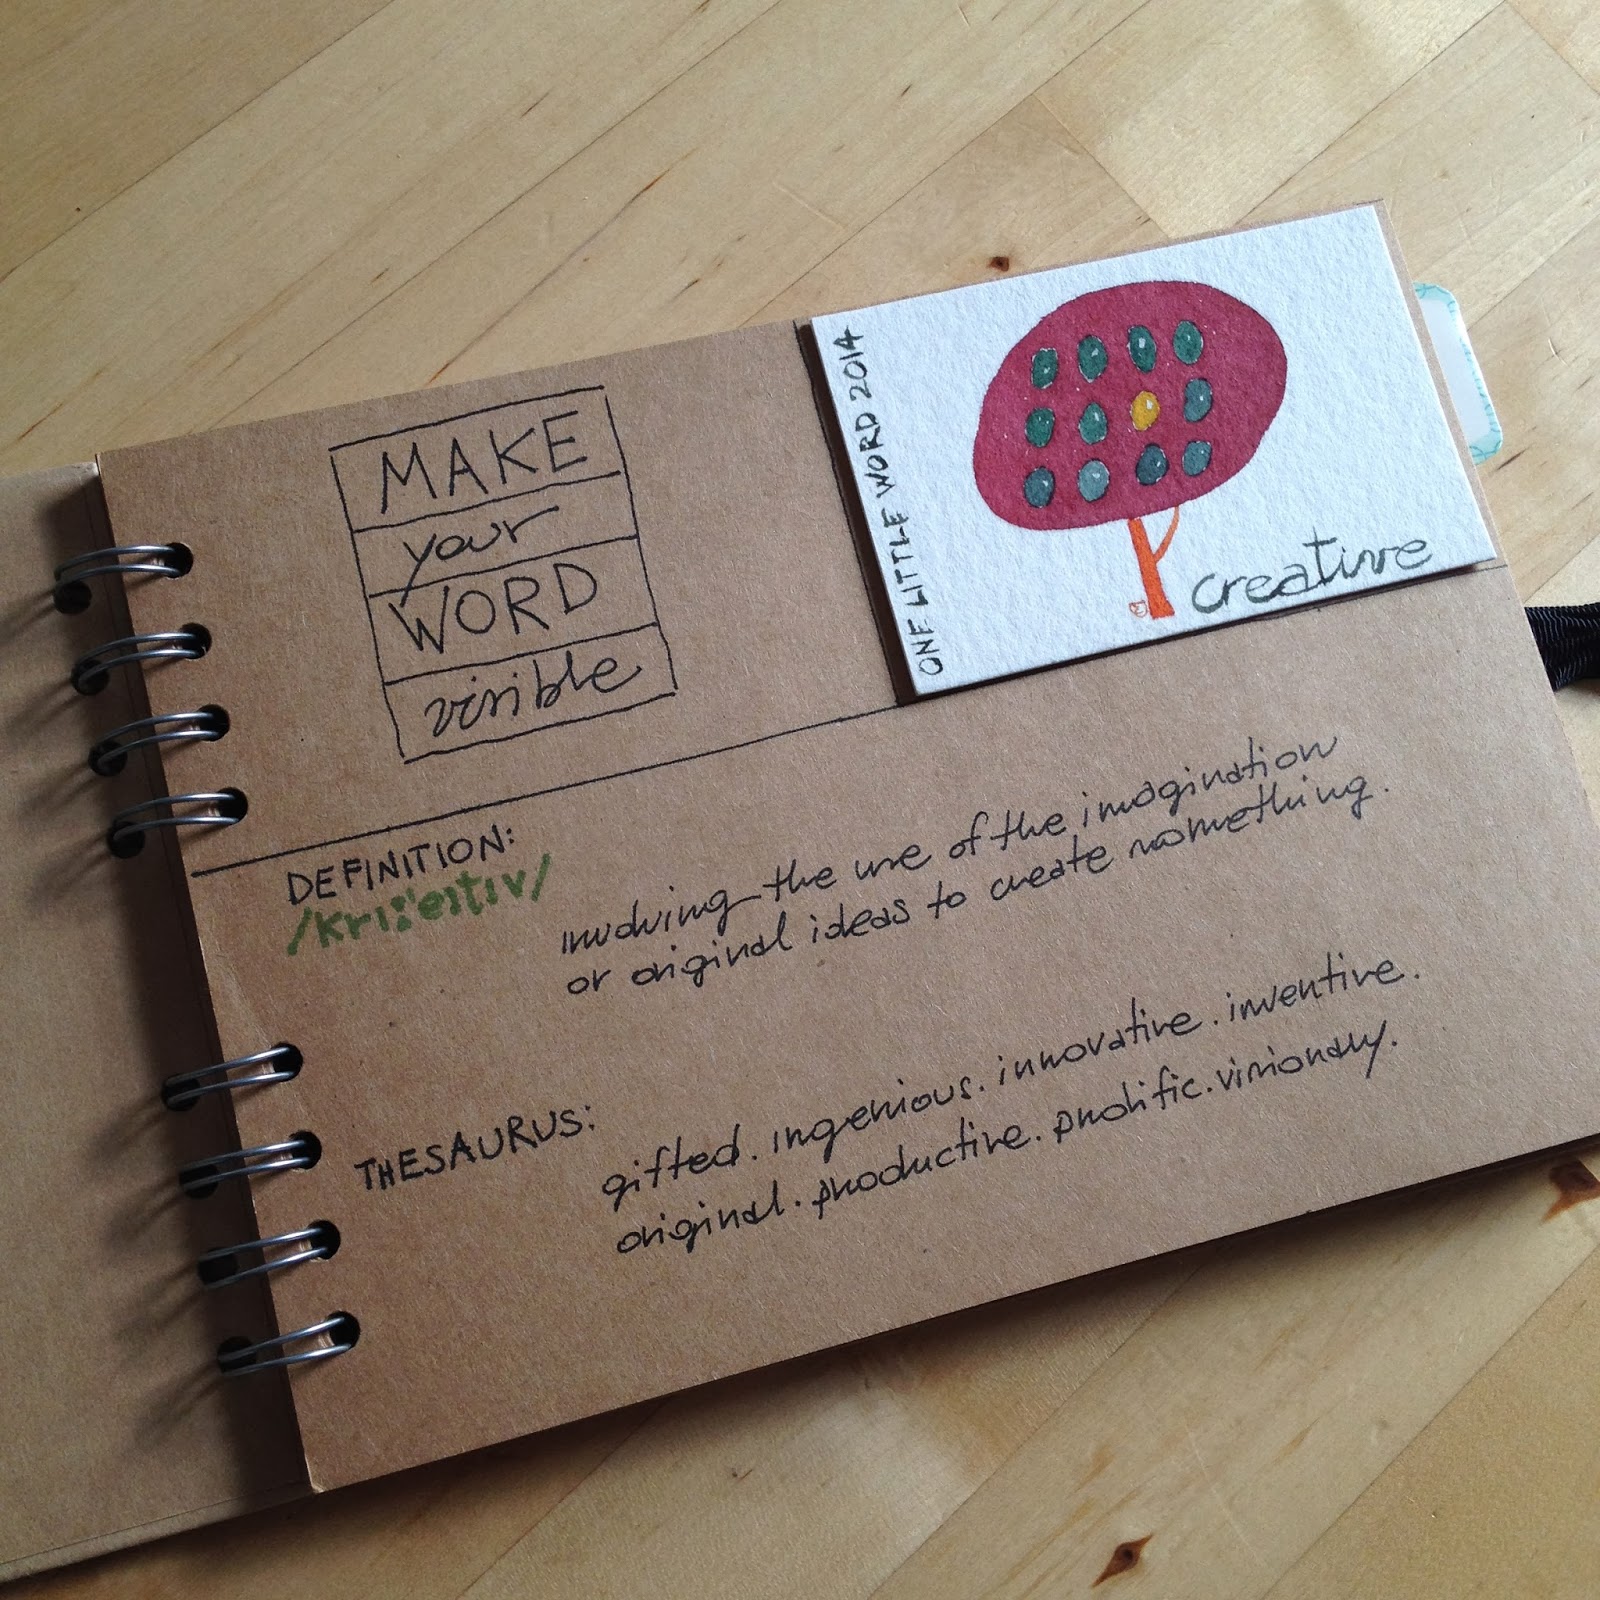 MAKE
your
WORD
visible
ONE LITTLE WORD 2014
creative
DEFINITION:
/kri:'eɪtɪv/
involving the use of the imagination
or original ideas to create something.
THESAURUS:
gifted. ingenious. innovative. inventive.
original. productive. prolific. visionary.